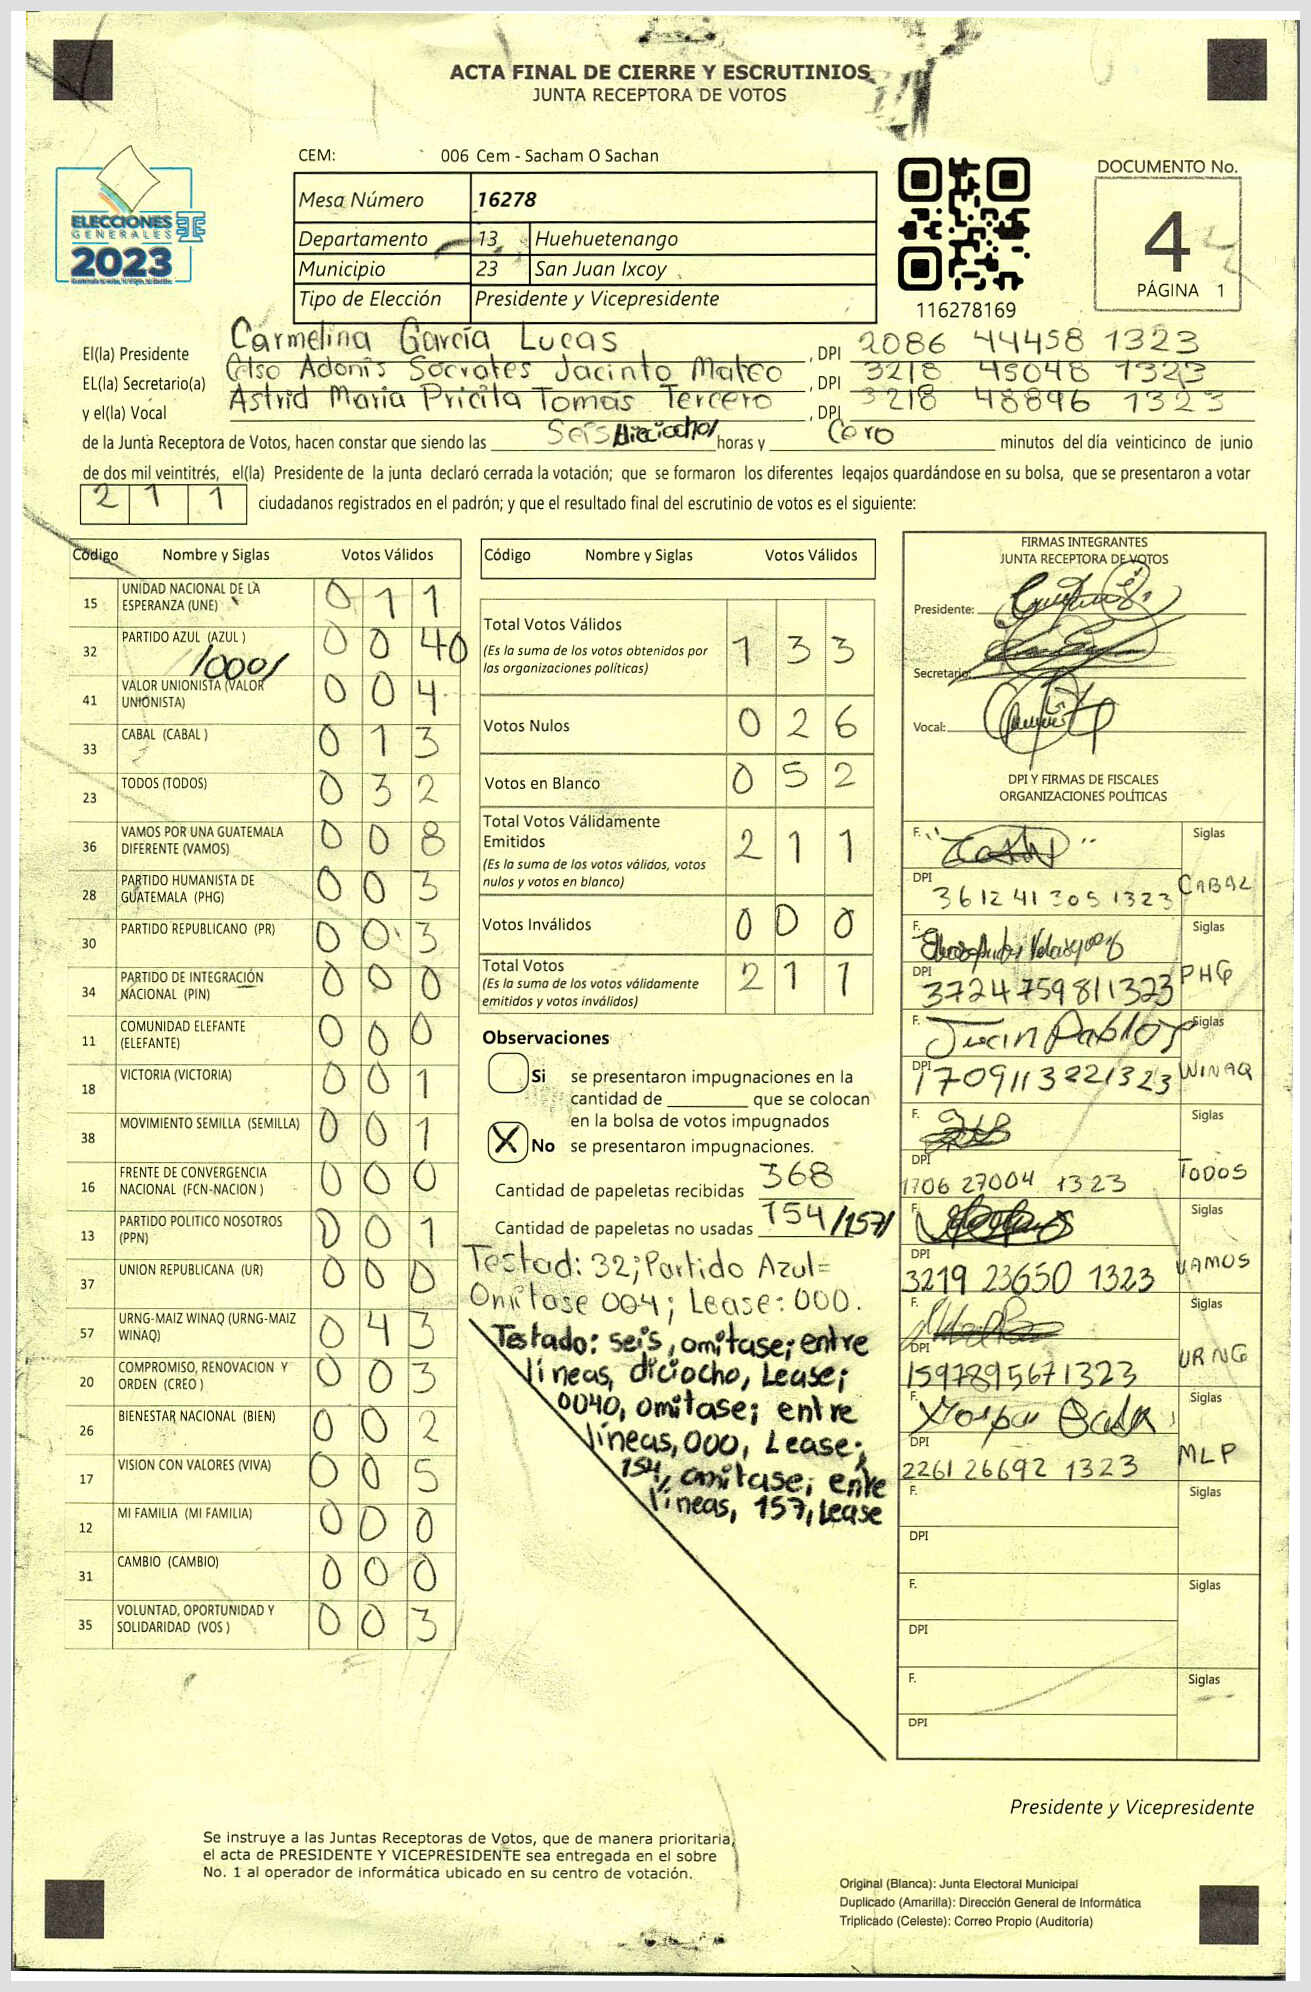 ACTA FINAL DE CIERRE Y ESCRUTINIOS
JUNTA RECEPTORA DE VOTOS
CEM: 006 Cem - Sacham O Sachan
ELECCIONES
GENERALES
2023
Mesa Número 16278
Departamento 13 Huehuetenango
Municipio 23 San Juan Ixcoy
Tipo de Elección Presidente y Vicepresidente
116278169
DOCUMENTO No.
4
PÁGINA 1
El(la) Presidente Carmelina García Lucas, DPI 2086 44458 1323
EL(la) Secretario(a) Celso Adonis Socrates Jacinto Mateo, DPI 3218 45048 1323
y el(la) Vocal Astrid Maria Pricila Tomas Tercero, DPI 3218 48896 1323
de la Junta Receptora de Votos, hacen constar que siendo las Seis /dieciocho/ horas y Cero minutos del día veinticinco de junio
de dos mil veintitrés, el(la) Presidente de la junta declaró cerrada la votación; que se formaron los diferentes legajos quardándose en su bolsa, que se presentaron a votar
2 1 1 ciudadanos registrados en el padrón; y que el resultado final del escrutinio de votos es el siguiente:
Código Nombre y Siglas Votos Válidos
15 UNIDAD NACIONAL DE LA ESPERANZA (UNE) 0 1 1
32 PARTIDO AZUL (AZUL ) 0 0 40
/000/
41 VALOR UNIONISTA (VALOR UNIONISTA) 0 0 4
33 CABAL (CABAL ) 0 1 3
23 TODOS (TODOS) 0 3 2
36 VAMOS POR UNA GUATEMALA DIFERENTE (VAMOS) 0 0 8
28 PARTIDO HUMANISTA DE GUATEMALA (PHG) 0 0 3
30 PARTIDO REPUBLICANO (PR) 0 0 3
34 PARTIDO DE INTEGRACIÓN NACIONAL (PIN) 0 0 0
11 COMUNIDAD ELEFANTE (ELEFANTE) 0 0 0
18 VICTORIA (VICTORIA) 0 0 1
38 MOVIMIENTO SEMILLA (SEMILLA) 0 0 1
16 FRENTE DE CONVERGENCIA NACIONAL (FCN-NACION ) 0 0 0
13 PARTIDO POLITICO NOSOTROS (PPN) 0 0 1
37 UNION REPUBLICANA (UR) 0 0 0
57 URNG-MAIZ WINAQ (URNG-MAIZ WINAQ) 0 4 3
20 COMPROMISO, RENOVACION Y ORDEN (CREO ) 0 0 3
26 BIENESTAR NACIONAL (BIEN) 0 0 2
17 VISION CON VALORES (VIVA) 0 0 5
12 MI FAMILIA (MI FAMILIA) 0 0 0
31 CAMBIO (CAMBIO) 0 0 0
35 VOLUNTAD, OPORTUNIDAD Y SOLIDARIDAD (VOS ) 0 0 3
Código Nombre y Siglas Votos Válidos
Total Votos Válidos 1 3 3
(Es la suma de los votos obtenidos por
las organizaciones políticas)
Votos Nulos 0 2 6
Votos en Blanco 0 5 2
Total Votos Válidamente
Emitidos 2 1 1
(Es la suma de los votos válidos, votos
nulos y votos en blanco)
Votos Inválidos 0 0 0
Total Votos 2 1 1
(Es la suma de los votos válidamente
emitidos y votos inválidos)
Observaciones
Si se presentaron impugnaciones en la
cantidad de ________ que se colocan
en la bolsa de votos impugnados
X No se presentaron impugnaciones.
Cantidad de papeletas recibidas 368
Cantidad de papeletas no usadas 154 /157/
Testad: 32; Partido Azul=
Omitase 004; Lease: 000.
Testado: seis, omitase; entre
líneas, diciocho, Lease;
0040, omitase; entre
líneas, 000, Lease;
154, omitase; entre
líneas, 157, Lease
FIRMAS INTEGRANTES
JUNTA RECEPTORA DE VOTOS
Presidente:
Secretario:
Vocal:
DPI Y FIRMAS DE FISCALES
ORGANIZACIONES POLÍTICAS
F. Siglas
DPI 3612 41305 1323 CABAL
F. Siglas
DPI 3724759811323 PHG
F. Juan Pablo Siglas
DPI 1709113221323 WINAQ
F. Siglas
DPI 1706 27004 1323 TODOS
F. Siglas
DPI 3219 23650 1323 VAMOS
F. Siglas
DPI 1597895671323 URNG
F. Siglas
DPI 2261 26692 1323 MLP
F. Siglas
DPI
F. Siglas
DPI
F. Siglas
DPI
Presidente y Vicepresidente
Se instruye a las Juntas Receptoras de Votos, que de manera prioritaria,
el acta de PRESIDENTE Y VICEPRESIDENTE sea entregada en el sobre
No. 1 al operador de informática ubicado en su centro de votación.
Original (Blanca): Junta Electoral Municipal
Duplicado (Amarilla): Dirección General de Informática
Triplicado (Celeste): Correo Propio (Auditoría)